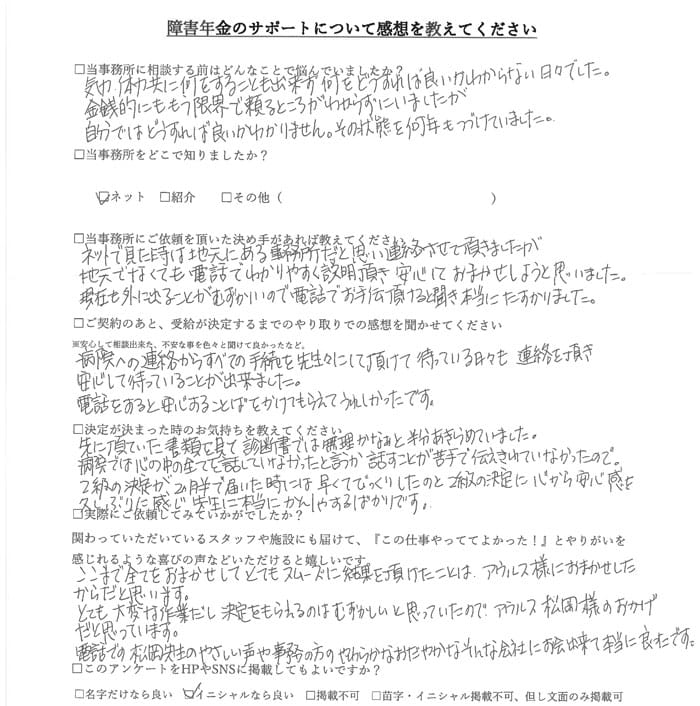 障害年金のサポートについて感想を教えてください
□当事務所に相談する前はどんなことで悩んでいましたか？
気力、体力共に何をすることも出来ず何をどうすれば良いかわからない日々でした。
金銭的にももう限界で頼るところがわからずにいましたが
自分ではどうすれば良いかわかりません。その状態を何年もつづけていました。
□当事務所をどこで知りましたか？
☑ネット □紹介 □その他（ ）
□当事務所にご依頼を頂いた決め手があれば教えてください
ネットで見た時は地元にある事務所だと思い連絡させて頂きましたが
地元でなくても電話でわかりやすく説明頂き安心しておまかせしようと思いました。
現在も外に出ることがむずかしいので電話でお手伝頂けると聞き本当にたすかりました。
□ご契約のあと、受給が決定するまでのやり取りでの感想を聞かせてください
※安心して相談出来た、不安な事を色々と聞けて良かったなど。
病院への連絡からすべての手続を先生々にして頂けて待っている日々も連絡を頂き
安心して待っていることが出来ました。
電話をすると安心することばをかけてもらえてうれしかったです。
□決定が決まった時のお気持ちを教えてください
先に頂ていた書類を見て診断書では無理かなぁと半分あきらめていました。
病院では心の中の全てを話していなかったと言うか話すことが苦手で伝えきれていなかったので。
2級の決定が2ヵ月半で届いた時には早くてびっくりしたのと2級の決定に心から安心感を
久しぶりに感じ先生に本当にかんしゃするばかりです。
□実際にご依頼してみていかがでしたか？
関わっていただいているスタッフや施設にも届けて、『この仕事やっててよかった！』とやりがいを
感じれるような喜びの声などいただけると嬉しいです
ここまで全てをおまかせしてとてもスムーズに結果を頂けたことは、アウルス様におまかせした
からだと思います。
とても大変な作業だし決定をもらえるのはむずかしいと思っていたので、アウルス松岡様のおかげ
だと思っています。
電話での松岡先生のやさしい声や事務の方のやわらかなおだやかなそんな会社にお会出来て本当に良たです。
□このアンケートをHPやSNSに掲載してもよいですか？
□名字だけなら良い ☑イニシャルなら良い □掲載不可 □苗字・イニシャル掲載不可、但し文面のみ掲載可